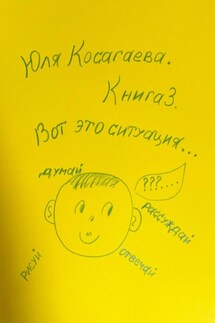 Юля Косагаева.
Книга3.
Вот это ситуация...
думай
???....
рассуждай
рисуй
отвечай